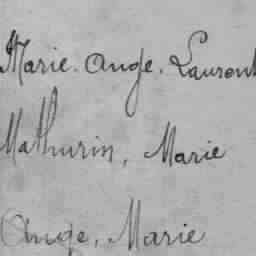 Marie. Ange. Laurent
Mathurin, Marie
Ange, Marie